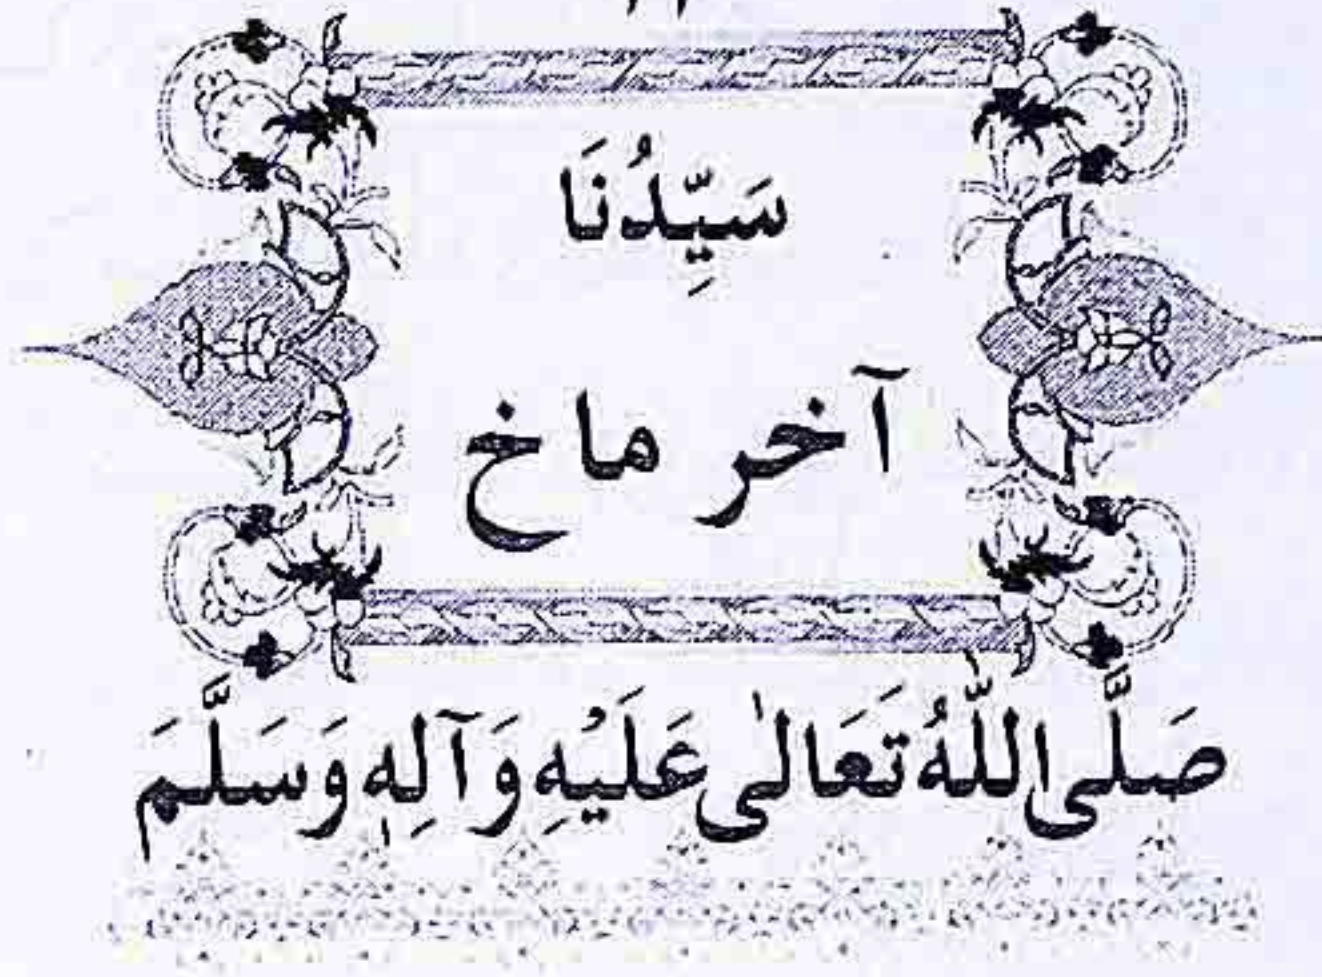 سَيِّدُنَا
آخر ماخ
صَلَّى اللّٰهُ تَعَالٰى عَلَيْهِ وَآلِهٖ وَسَلَّمَ